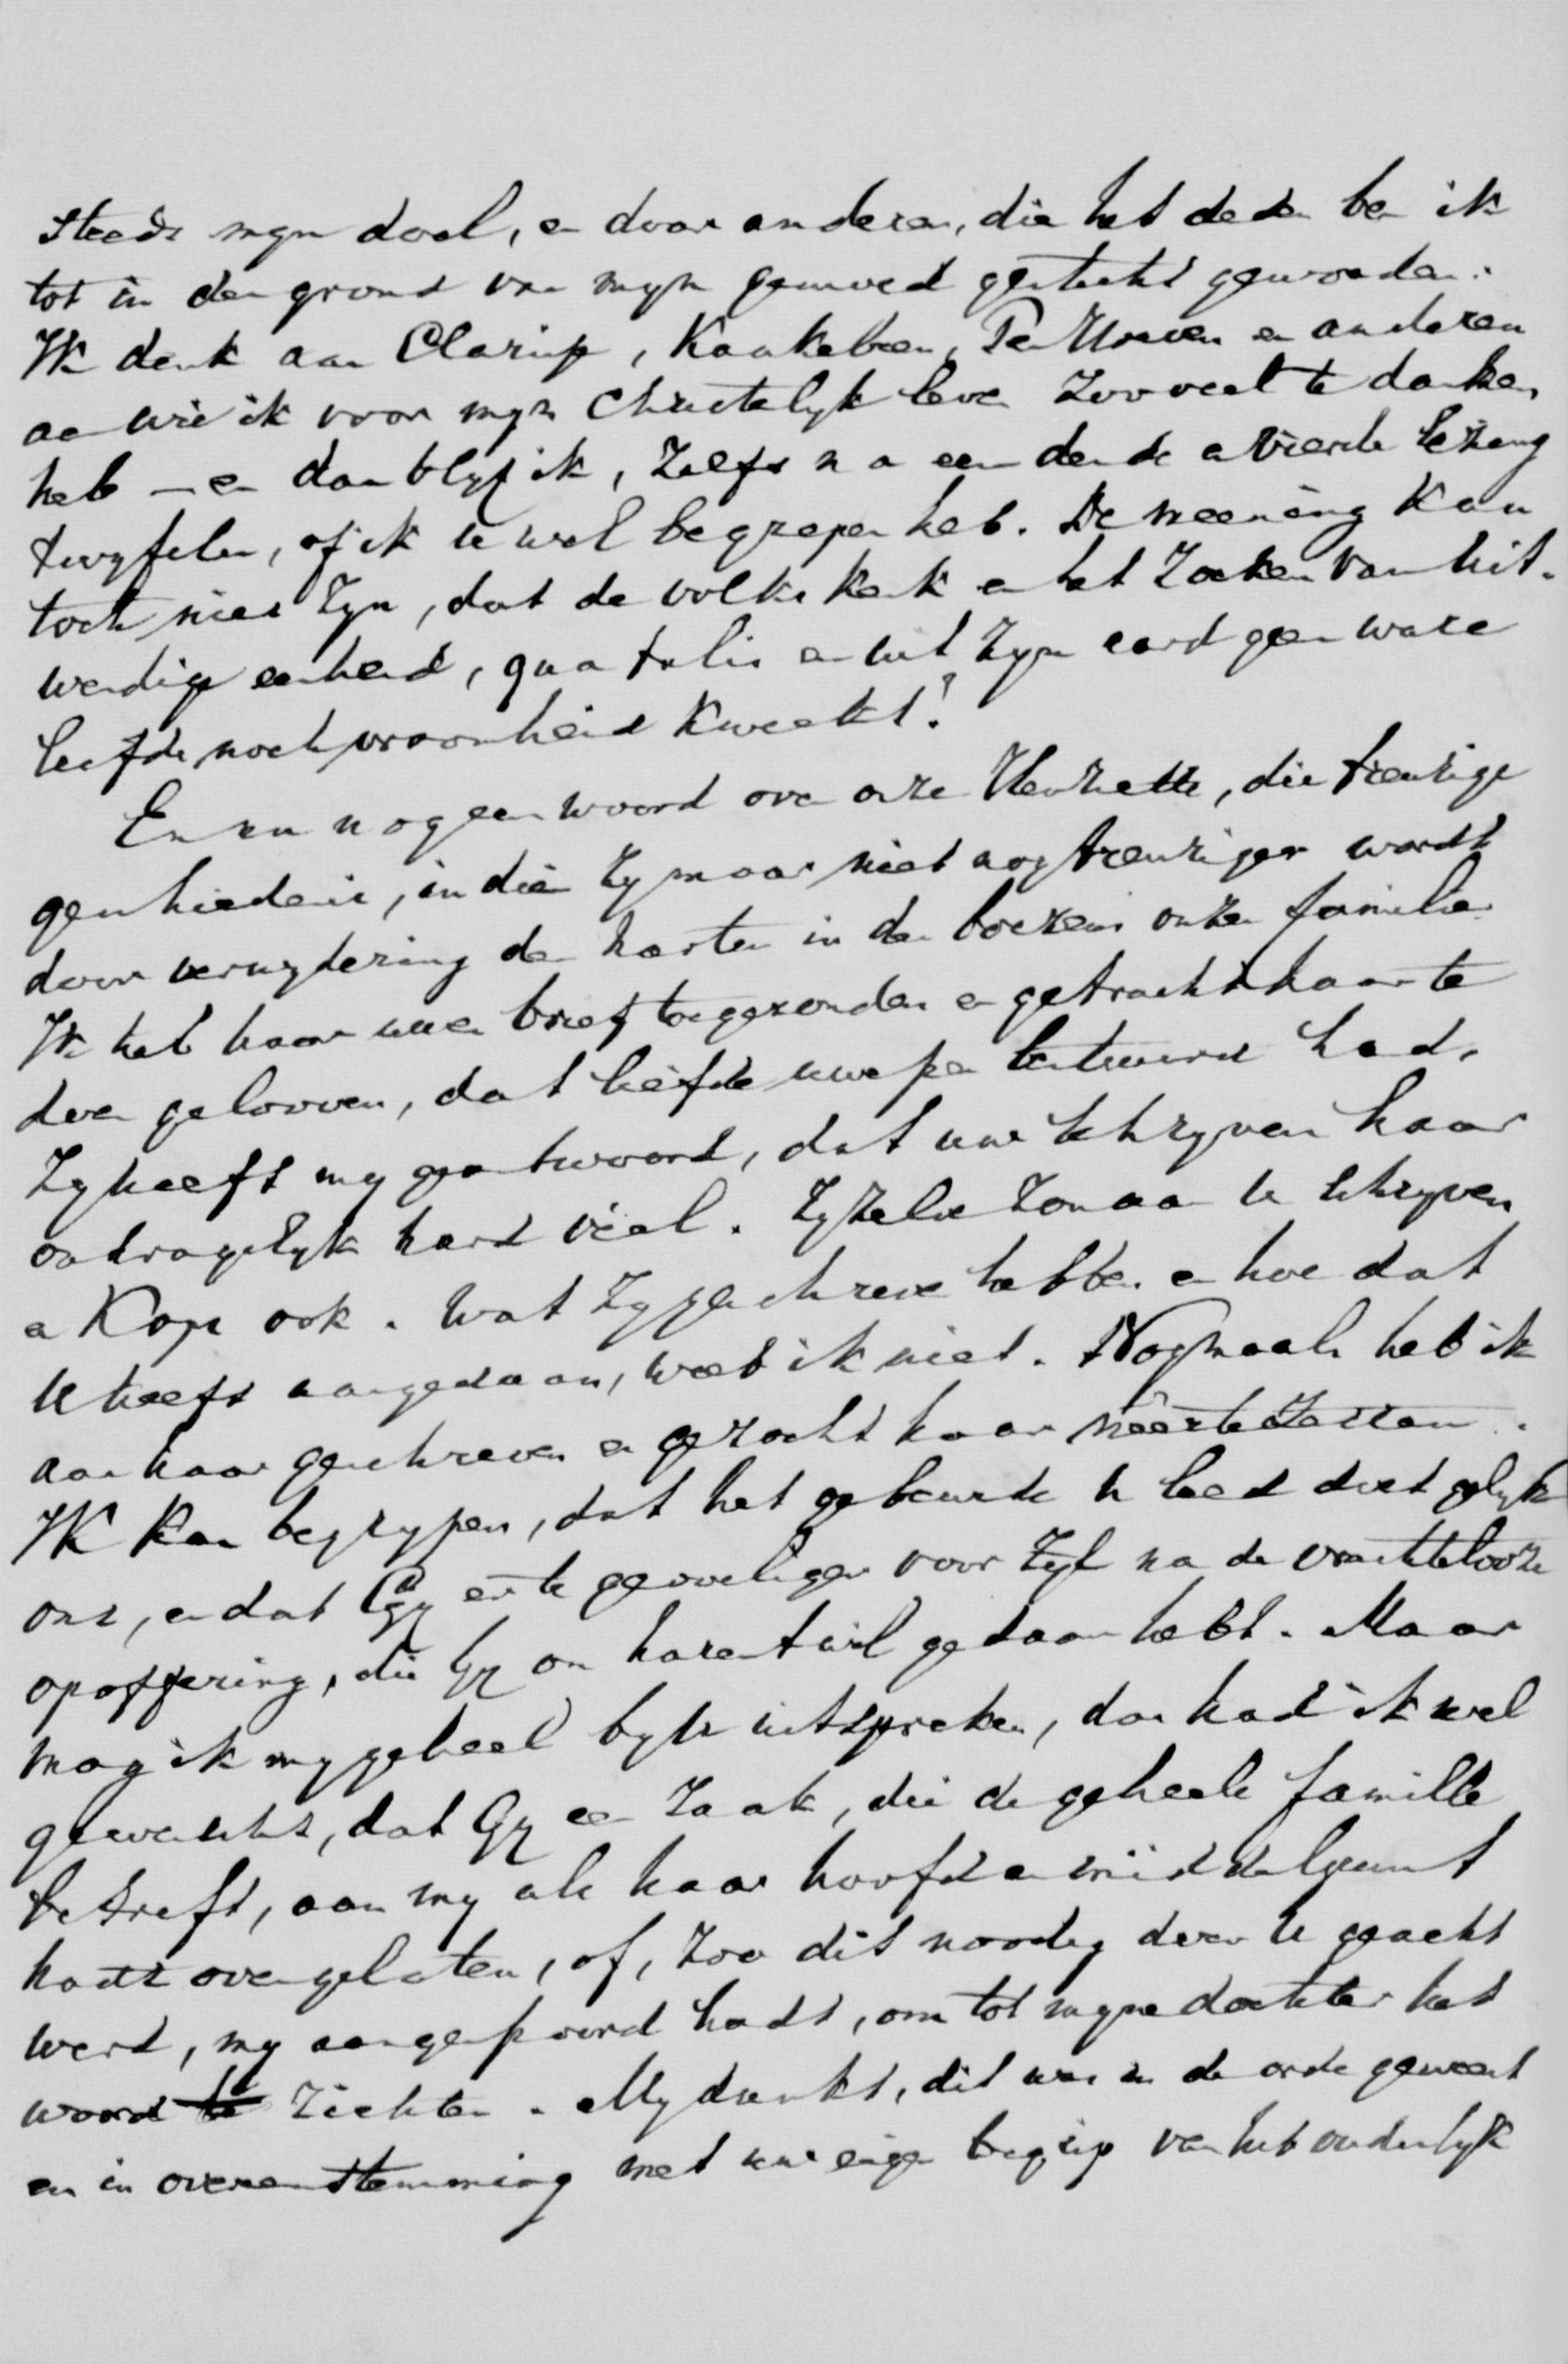 steeds myn doel, en door anderen, die het deden ben ik
tot in den grond van myn gemoed gesticht geworden.
Ik denk aan Clarisse, Kaakebeen, Ter Hoeven en anderen
aan wie ik voor myn Christelyk leven zooveel te danken
heb — en dan blyf ik, zelfs na een derde en vierde lezing
twyfelen, of ik U wel begrepen heb. De meening kan
toch niet zyn, dat de volkskerk en het zoeken van uit-
wendige eenheid, qua talis en uit zyn aard geen ware
liefde noch vroomheid kweekt!
En nu nog een woord over onze Henriette, die treurige
geschiedenis, indien zy maar niet nog treuriger wordt
door verwydering der harten in den boezem onzer familie.
Ik heb haar uwen brief toegezonden en getracht haar te
doen gelooven, dat liefde uwe pen bestuurd had.
Zy heeft my geantwoord, dat uw schryven haar
ondragelyk hard viel. Zy zelve zou aan U schryven
en Kops ook. Wat zy geschreven hebben en hoe dat
U heeft aangedaan, weet ik niet. Nogmaals heb ik
aan haar geschreven en gezocht haar neêrtezetten.
Ik kan begrypen, dat het gebeurde U leed doet gelyk
ons, en dat Gy er te gevoeliger voor zyt na de vruchtelooze
opoffering, die Gy om harentwil gedaan hebt. Maar
mag ik my geheel by U uitspreken, dan had ik wel
gewenscht, dat Gy een zaak, die de geheele familie
betreft, aan my als haar hoofd en middelpunt
hadt overgelaten, of, zoo dit noodig door U geacht
werd, my aangespoord hadt, om tot myne dochter het
woord te richten. My dunkt, dit was in de orde geweest
en in overeenstemming met uw eigen begrip van het ouderlyk